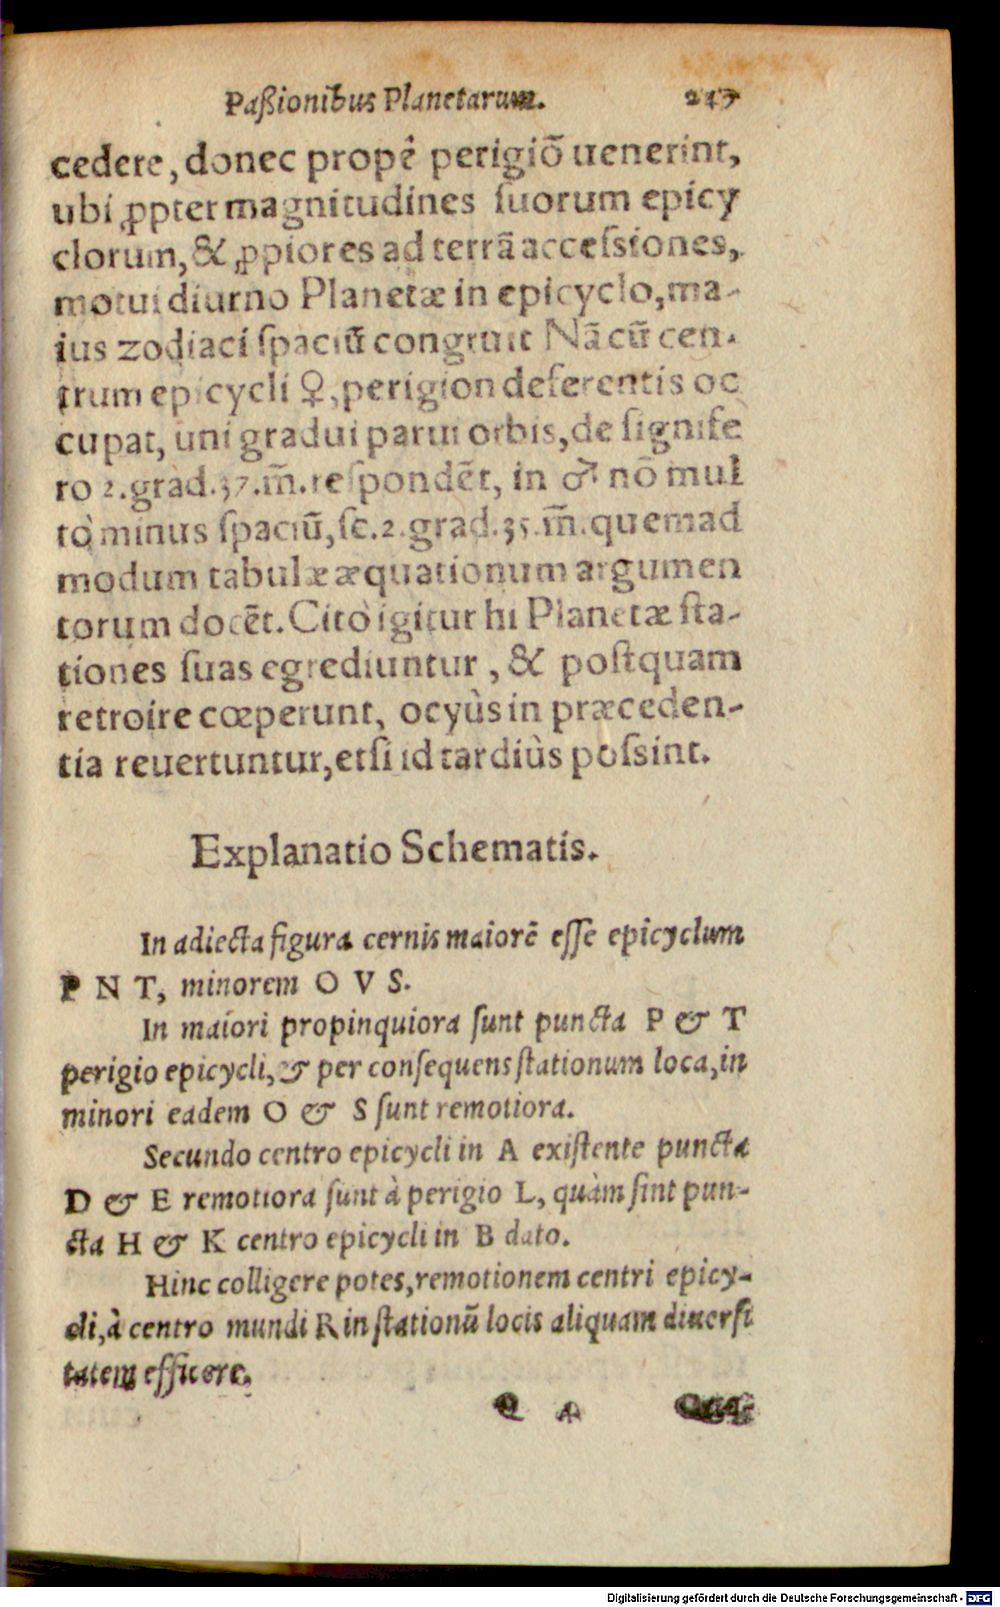 Paßionibus Planetarum. 247
cedere, donec propè perigiõ uenerint,
ubi ꝓpter magnitudines ſuorum epicy
clorum, & ꝓpiores ad terrã acceſsiones,
motui diurno Planetæ in epicyclo, ma-
ius zodiaci ſpaciũ congruit Nã cũ cen-
trum epicycli ♀, perigion deferentis oc
cupat, uni gradui parui orbis, de ſignife
ro 2. grad. 37. m̃. reſpondẽt, in ♂ nõ mul
tò minus ſpaciũ, ſc. 2. grad. 35. m̃. quemad
modum tabulæ æquationum argumen
torum docẽt. Citò igitur hi Planetæ ſta-
tiones ſuas egrediuntur, & poſtquam
retroire cœperunt, ocyùs in præceden-
tia reuertuntur, etſi id tardiùs poſsint.
Explanatio Schematis.
In adiecta figura cernis maiorẽ eſſe epicyclum
P N T, minorem O V S.
In maiori propinquiora ſunt puncta P & T
perigio epicycli, & per conſequens ſtationum loca, in
minori eadem O & S ſunt remotiora.
Secundo centro epicycli in A exiſtente puncta
D & E remotiora ſunt à perigio L, quàm ſint pun-
cta H & K centro epicycli in B dato.
Hinc colligere potes, remotionem centri epicy-
cli, à centro mundi R in ſtationũ locis aliquam diuerſi
tatem efficere.
Q 4
Digitalisierung gefördert durch die Deutsche Forschungsgemeinschaft - DFG